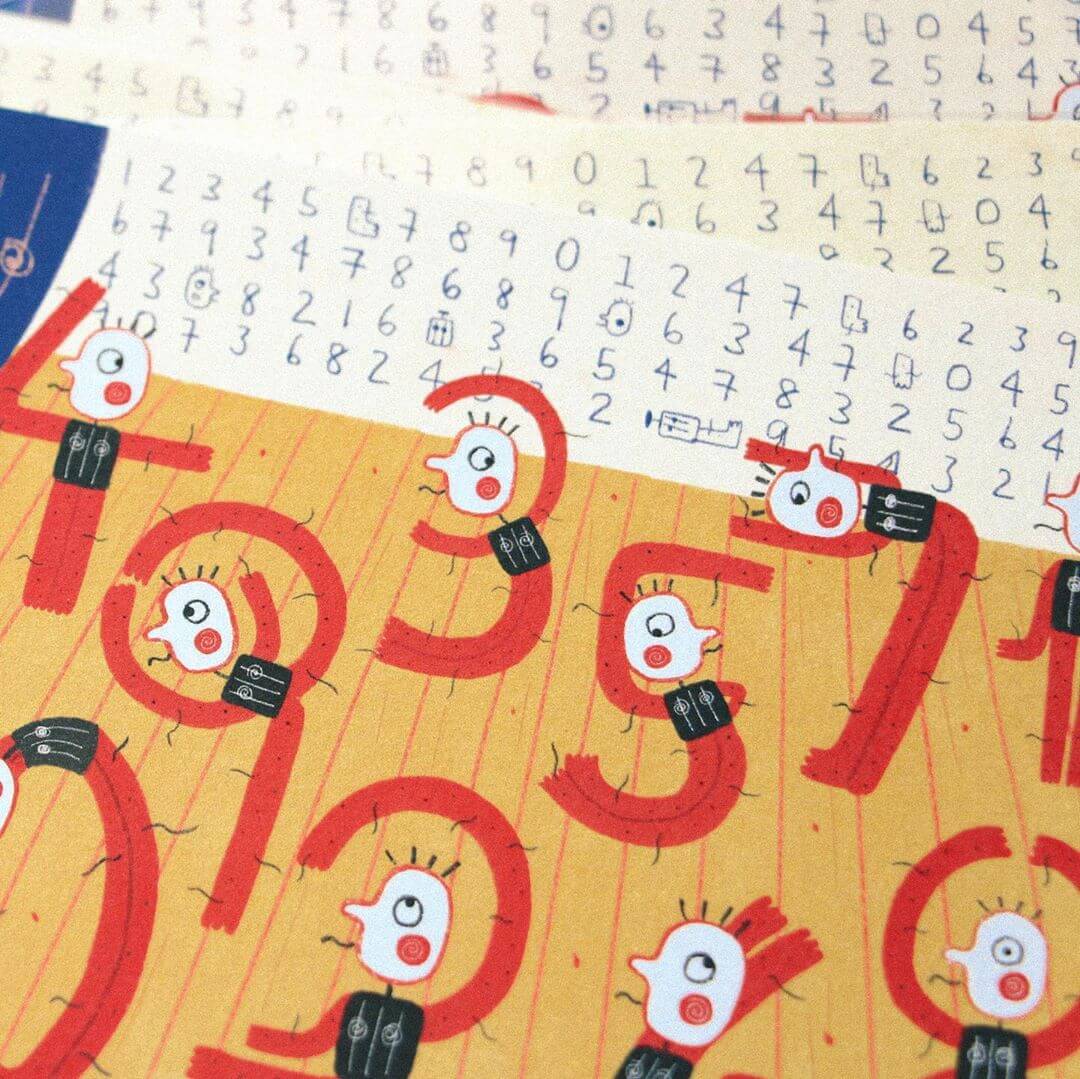 3 4 7 8 6 8 9 6 3 4 7 0 4 5 7
2 1 6 3 6 5 4 7 8 3 2 5 6 4 3
3 4 5 7 8 9 2 9 5 4 3 2 1
7 8 9 0 1 2 4 7 6 2 3 9
9 6 3 4 7 0 4
2 2 5 6
1 2 3 4 5 7 8 9 0 1 2 4 7 6 2 3 9
6 7 9 3 4 7 8 6 8 9 6 3 4 7 0 4 5
4 3 8 2 1 6 3 6 5 4 7 8 3 2 5 6 4
1 0 7 3 6 8 2 4 2 9 5 4 3 2 1
4 3 7 1
9 5
0 2